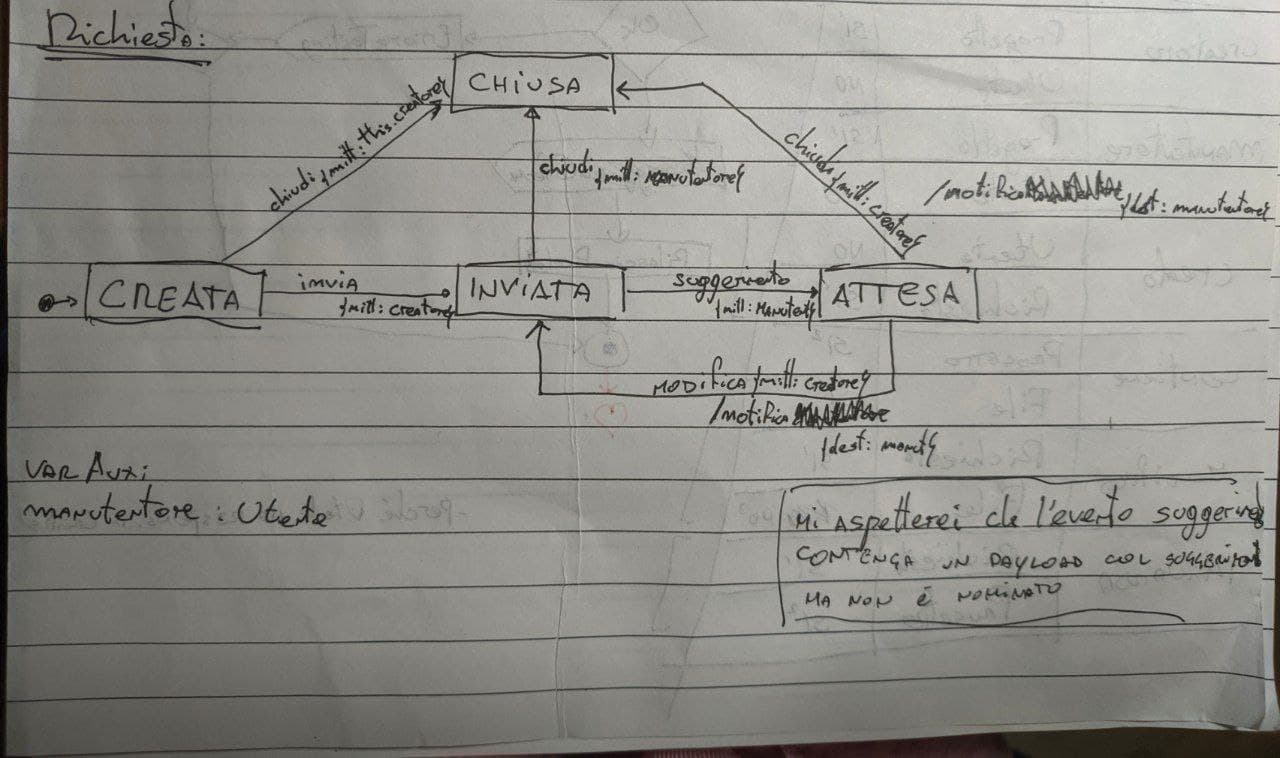 Richiesta:
CHIUSA
chiudi {mitt: this.creatore}
chiudi
{mitt: MANutentore}
chiudi {mitt: creatore}
/notifica
{dest: manutentore}
CREATA
invia
{mitt: creatore}
INVIATA
suggerimento
{mitt: Manutent}
ATTESA
MODIFICA {mitt: creatore}
/notifica
{dest: manut}
VAR AUXi
MANUTENTORE : Utente
Mi ASPETTEREi che l'evento
CONTENGA UN PAYLOAD COL
MA NON È NOMINATO